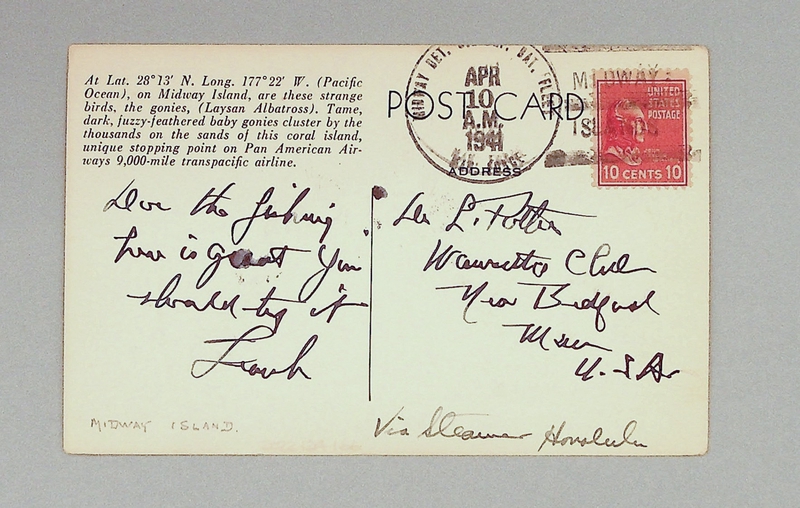 At Lat. 28°13' N. Long. 177°22' W. (Pacific
Ocean), on Midway Island, are these strange
birds, the gonies, (Laysan Albatross). Tame,
dark, fuzzy-feathered baby gonies cluster by the
thousands on the sands of this coral island,
unique stopping point on Pan American Air-
ways 9,000-mile transpacific airline.
POST CARD
ADDRESS
APR
10
A.M.
1941
MIDWAY
ISLANDS
UNITED
STATES
POSTAGE
10 CENTS 10
the fishing
here is great You
should try it
Frank
Dr L. Potter
Club
New Bedford
Mass
U.S.A.
Via Steamer Honolulu
MIDWAY ISLAND.